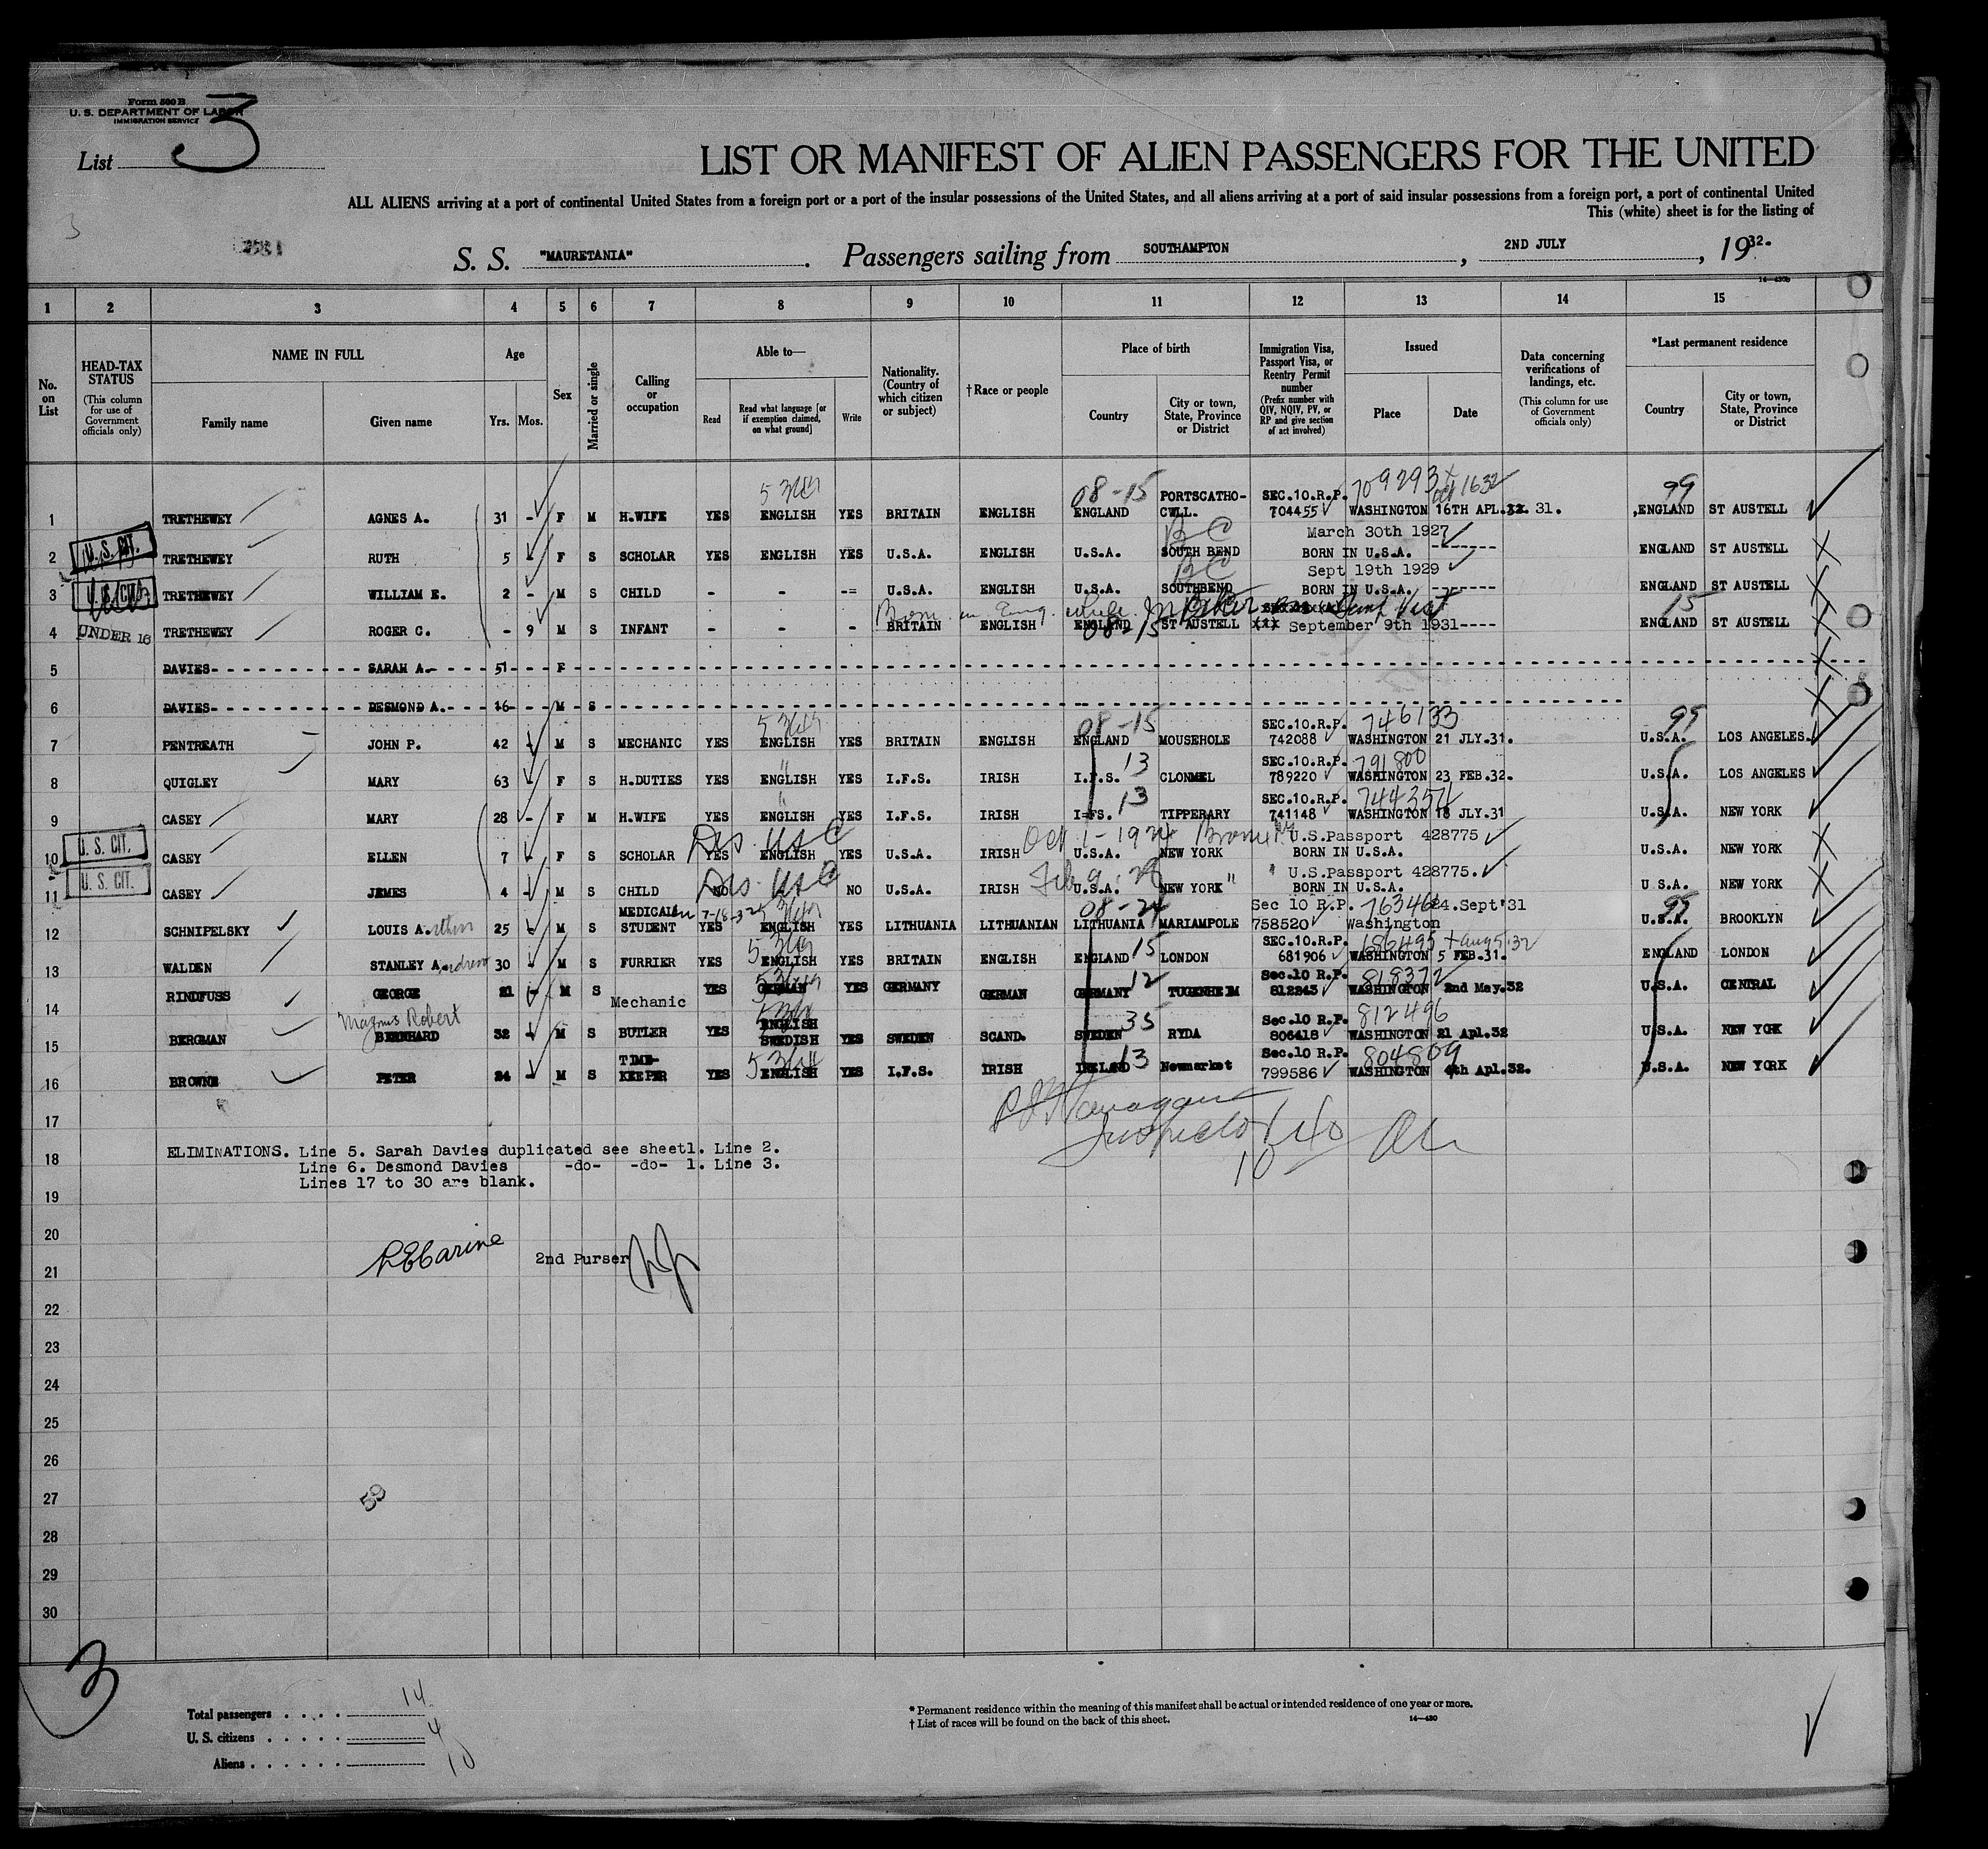 Form 500 B
U. S. DEPARTMENT OF LABOR
IMMIGRATION SERVICE
List 3
LIST OR MANIFEST OF ALIEN PASSENGERS FOR THE UNITED
ALL ALIENS arriving at a port of continental United States from a foreign port or a port of the insular possessions of the United States, and all aliens arriving at a port of said insular possessions from a foreign port, a port of continental United
This (white) sheet is for the listing of
3
S. S. "MAURETANIA". Passengers sailing from SOUTHAMPTON, 2ND JULY, 1932-
1 2 3 4 5 6 7 8 9 10 11 12 13 14 15
No. on List
HEAD-TAX STATUS (This column for use of Government officials only)
NAME IN FULL Family name Given name
Age Yrs. Mos.
Sex
Married or single
Calling or occupation
Able to— Read Read what language [or if exemption claimed, on what ground] Write
Nationality. (Country of which citizen or subject)
† Race or people
Place of birth Country City or town, State, Province or District
Immigration Visa, Passport Visa, or Reentry Permit number (Prefix number with QIV, NQIV, PV, or RP and give section of act involved)
Issued Place Date
Data concerning verifications of landings, etc. (This column for use of Government officials only)
*Last permanent residence Country City or town, State, Province or District
08-15 PORTSCATHO- SEC.10.R.P. 709293 99
1 TRETHEWEY AGNES A. 31 - F M H.WIFE YES ENGLISH YES BRITAIN ENGLISH ENGLAND CWLL. 704455 WASHINGTON 16TH APL. 31. ENGLAND ST AUSTELL
B C March 30th 1927
U. S. CIT.
2 TRETHEWEY RUTH 5 - F S SCHOLAR YES ENGLISH YES U.S.A. ENGLISH U.S.A. SOUTH BEND BORN IN U.S.A. -------- ENGLAND ST AUSTELL
B C Sept 19th 1929
U. S. CIT.
3 TRETHEWEY WILLIAM E. 2 - M S CHILD - - -= U.S.A. ENGLISH U.S.A. SOUTHBEND BORN IN U.S.A. ------- ENGLAND ST AUSTELL
Born in Eng. while 15
4 UNDER 16 TRETHEWEY ROGER C. - 9 M S INFANT - - - BRITAIN ENGLISH ENGLAND ST AUSTELL September 9th 1931---- ENGLAND ST AUSTELL
08-15
5 DAVIES- SARAH A.- 51 F
6 DAVIES- DESMOND A.- 16 M S
08-15 SEC.10.R.P. 746133 99
7 PENTREATH JOHN P. 42 - M S MECHANIC YES ENGLISH YES BRITAIN ENGLISH ENGLAND MOUSEHOLE 742088 WASHINGTON 21 JLY.31. U.S.A. LOS ANGELES.
13 SEC.10.R.P. 791800
8 QUIGLEY MARY 63 F S H.DUTIES YES ENGLISH YES I.F.S. IRISH I.F.S. CLONMEL 789220 WASHINGTON 23 FEB.32. U.S.A. LOS ANGELES
13 SEC.10.R.P. 744357
9 CASEY MARY 28 - F M H.WIFE YES ENGLISH YES I.F.S. IRISH I.FS. TIPPERARY 741148 WASHINGTON 18 JLY.31 U.S.A. NEW YORK
U. S. CIT. Oct 1-1924 U.S.Passport 428775
10 CASEY ELLEN 7 - F S SCHOLAR YES ENGLISH YES U.S.A. IRISH U.S.A. NEW YORK BORN IN U.S.A. U.S.A. NEW YORK
U. S. CIT. U.S.Passport 428775.
11 CASEY JEMES 4 - M S CHILD NO NO U.S.A. IRISH U.S.A. NEW YORK " BORN IN U.S.A. U S.A. NEW YORK
MEDICAL 7-18-32 08-24 Sec 10 R.P. 763468 24.Sept'31 99
12 SCHNIPELSKY LOUIS Arthur 25 - M S STUDENT YES ENGLISH YES LITHUANIA LITHUANIAN LITHUANIA MARIAMPOLE 758520 Washington U.S.A. BROOKLYN
15 SEC.10.R.P. 686495
13 WALDEN STANLEY Andrew 30 - M S FURRIER YES ENGLISH YES BRITAIN ENGLISH ENGLAND LONDON 681906 WASHINGTON 5 FEB.31. ENGLAND LONDON
12 Sec.10 R.P. 818372
14 RINDFUSS GEORGE 21 - M S Mechanic YES GERMAN YES GERMANY GERMAN GERMANY TUGENHEIM 812243 WASHINGTON 2nd May.32 U.S.A. CENTRAL
Magnus Robert ENGLISH 35 Sec.10 R.P. 812496
15 BERGMAN BERNHARD 32 - M S BUTLER YES SWEDISH YES SWEDEN SCAND. SWEDEN RYDA 806418 WASHINGTON 21 Apl.32 U.S.A. NEW YORK
TIME- 13 Sec.10 R.P. 804809
16 BROWNE PETER 24 - M S KEEPER YES ENGLISH YES I.F.S. IRISH IRELAND Newmarket 799586 WASHINGTON 4th Apl.32. U.S.A. NEW YORK
17
Inspector
18 ELIMINATIONS. Line 5. Sarah Davies duplicated see sheet1. Line 2.
Line 6. Desmond Davies -do- -do- 1. Line 3.
Lines 17 to 30 are blank.
19
20
2nd Purser
21
22
23
24
25
26
27
59
28
29
30
3
Total passengers . . . . . 14
U. S. citizens . . . . . 4
Aliens . . . . . . 10
* Permanent residence within the meaning of this manifest shall be actual or intended residence of one year or more.
† List of races will be found on the back of this sheet. 14—430